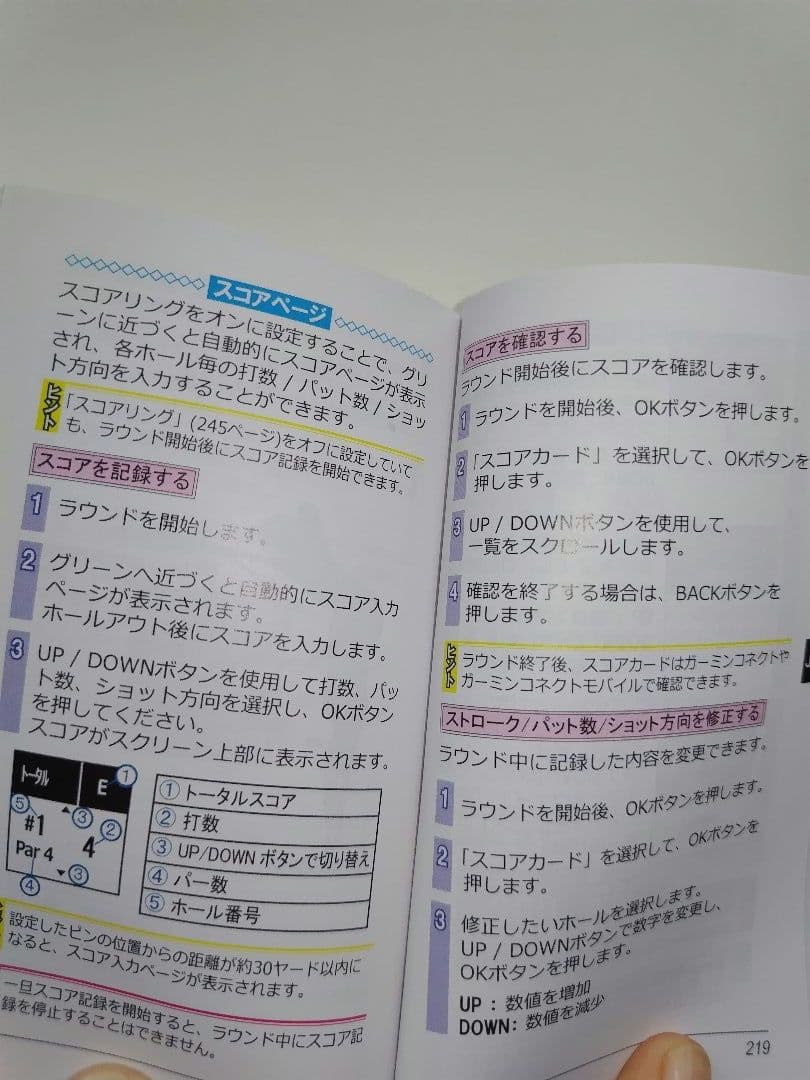 スコアページ
スコアリングをオンに設定することで、グリ
ーンに近づくと自動的にスコアページが表示
され、各ホール毎の打数 / パット数 / ショッ
ト方向を入力することができます。
ヒント
「スコアリング」(245ページ)をオフに設定していて
も、ラウンド開始後にスコア記録を開始できます。
スコアを記録する
1
ラウンドを開始します。
2
グリーンへ近づくと自動的にスコア入力
ページが表示されます。
ホールアウト後にスコアを入力します。
3
UP / DOWNボタンを使用して打数、パッ
ト数、ショット方向を選択し、OKボタン
を押してください。
スコアがスクリーン上部に表示されます。
トータル E ①
⑤ ③
#1 4 ②
Par 4 ③
④
① トータルスコア
② 打数
③ UP/DOWN ボタンで切り替え
④ パー数
⑤ ホール番号
設定したピンの位置からの距離が約30ヤード以内に
なると、スコア入力ページが表示されます。
一旦スコア記録を開始すると、ラウンド中にスコア記
録を停止することはできません。
スコアを確認する
ラウンド開始後にスコアを確認します。
1
ラウンドを開始後、OKボタンを押します。
2
「スコアカード」を選択して、OKボタンを
押します。
3
UP / DOWNボタンを使用して、
一覧をスクロールします。
4
確認を終了する場合は、BACKボタンを
押します。
ヒント
ラウンド終了後、スコアカードはガーミンコネクトや
ガーミンコネクトモバイルで確認できます。
ストローク/パット数/ショット方向を修正する
ラウンド中に記録した内容を変更できます。
1
ラウンドを開始後、OKボタンを押します。
2
「スコアカード」を選択して、OKボタンを
押します。
3
修正したいホールを選択します。
UP / DOWNボタンで数字を変更し、
OKボタンを押します。
UP : 数値を増加
DOWN: 数値を減少
219